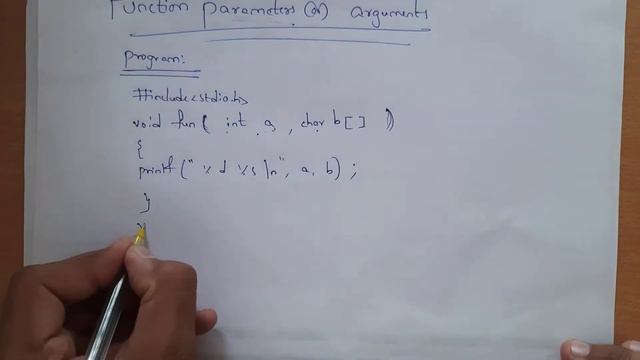 Function Parameters (or) arguments
Program:
#include<stdio.h>
void fun( int a, char b[] )
{
printf("%d %s \n", a, b);
}